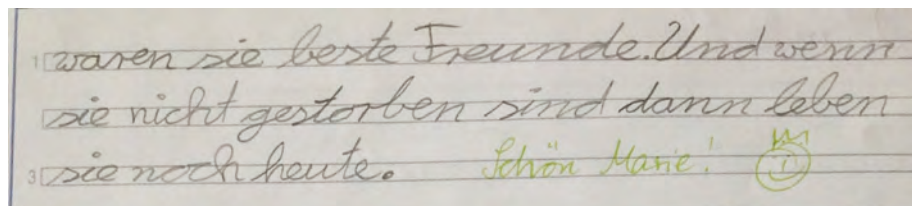 1 waren sie beste Freunde. Und wenn
sie nicht gestorben sind dann leben
3 sie noch heute. Schön Marie!